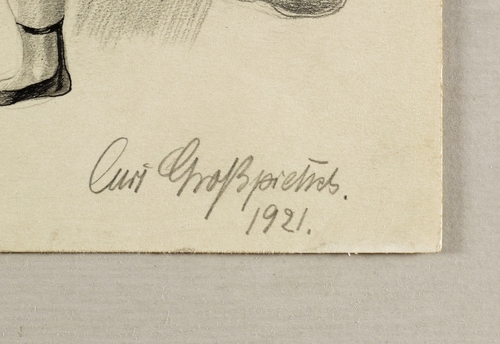 Curt Großpietsch.
1921.